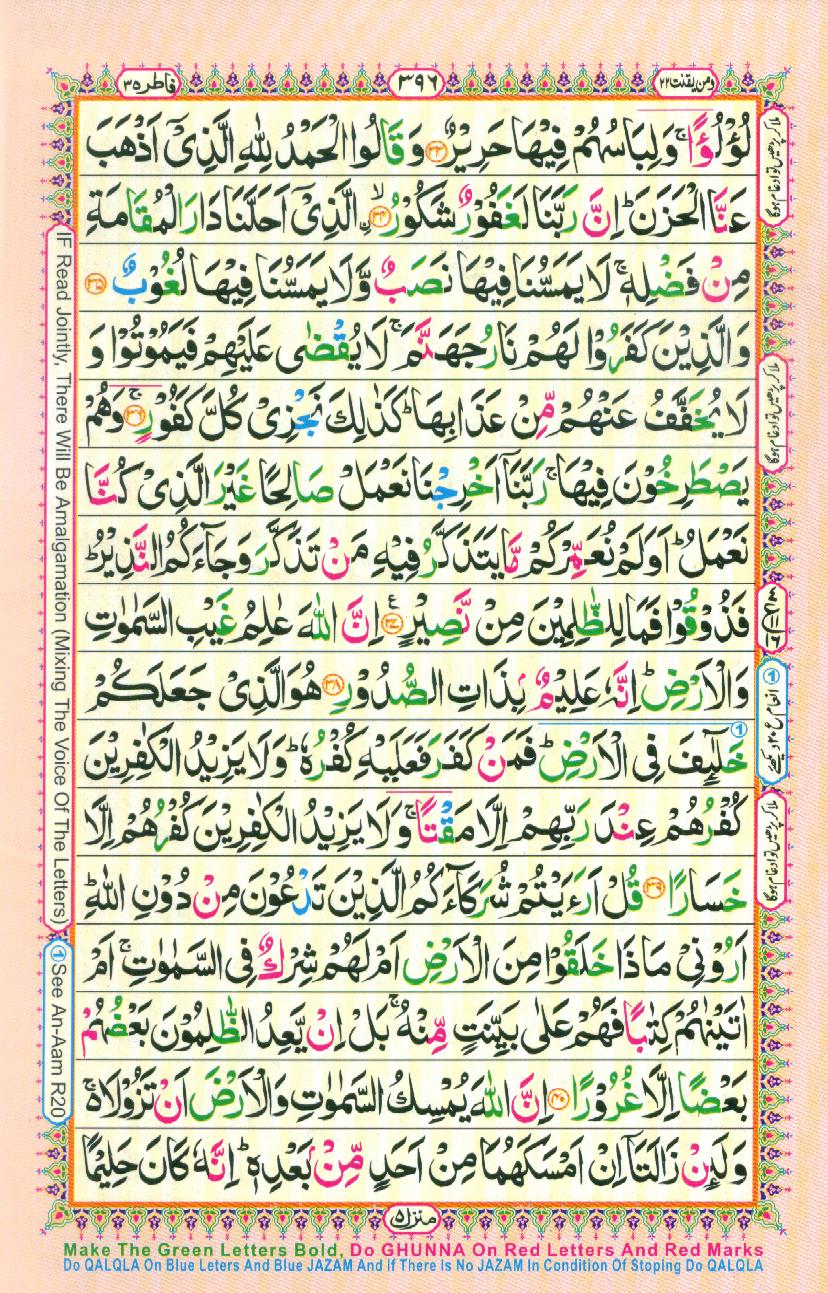 ومن یقنت ۲۲
۳۹۶
فاطر ۳۵
لُؤْلُؤًا ۚ وَلِبَاسُهُمْ فِيْهَا حَرِيْرٌ ﴿۳۳﴾ وَقَالُوا الْحَمْدُ لِلّٰهِ الَّذِيْۤ اَذْهَبَ
عَنَّا الْحَزَنَ ؕ اِنَّ رَبَّنَا لَغَفُوْرٌ شَكُوْرُ ۙ﴿۳۴﴾ الَّذِيْۤ اَحَلَّنَا دَارَ الْمُقَامَةِ
مِنْ فَضْلِهٖ ۚ لَا يَمَسُّنَا فِيْهَا نَصَبٌ وَّلَا يَمَسُّنَا فِيْهَا لُغُوْبٌ ﴿۳۵﴾
وَالَّذِيْنَ كَفَرُوْا لَهُمْ نَارُ جَهَنَّمَ ۚ لَا يُقْضٰى عَلَيْهِمْ فَيَمُوْتُوْا وَ
لَا يُخَفَّفُ عَنْهُمْ مِّنْ عَذَابِهَا ؕ كَذٰلِكَ نَجْزِيْ كُلَّ كَفُوْرٍ ۚ﴿۳۶﴾ وَهُمْ
يَصْطَرِخُوْنَ فِيْهَا ۚ رَبَّنَاۤ اَخْرِجْنَا نَعْمَلْ صَالِحًا غَيْرَ الَّذِيْ كُنَّا
نَعْمَلُ ؕ اَوَلَمْ نُعَمِّرْكُمْ مَّا يَتَذَكَّرُ فِيْهِ مَنْ تَذَكَّرَ وَجَآءَكُمُ النَّذِيْرُ ؕ
فَذُوْقُوْا فَمَا لِلظّٰلِمِيْنَ مِنْ نَّصِيْرٍ ﴿۳۷﴾ اِنَّ اللّٰهَ عٰلِمُ غَيْبِ السَّمٰوٰتِ
وَالْاَرْضِ ؕ اِنَّهٗ عَلِيْمٌۢ بِذَاتِ الصُّدُوْرِ ﴿۳۸﴾ هُوَ الَّذِيْ جَعَلَكُمْ
خَلٰٓىِٕفَ فِي الْاَرْضِ ؕ فَمَنْ كَفَرَ فَعَلَيْهِ كُفْرُهٗ ؕ وَلَا يَزِيْدُ الْكٰفِرِيْنَ
كُفْرُهُمْ عِنْدَ رَبِّهِمْ اِلَّا مَقْتًا ۚ وَلَا يَزِيْدُ الْكٰفِرِيْنَ كُفْرُهُمْ اِلَّا
خَسَارًا ﴿۳۹﴾ قُلْ اَرَءَيْتُمْ شُرَكَآءَكُمُ الَّذِيْنَ تَدْعُوْنَ مِنْ دُوْنِ اللّٰهِ ؕ
اَرُوْنِيْ مَاذَا خَلَقُوْا مِنَ الْاَرْضِ اَمْ لَهُمْ شِرْكٌ فِي السَّمٰوٰتِ ۚ اَمْ
اٰتَيْنٰهُمْ كِتٰبًا فَهُمْ عَلٰى بَيِّنَتٍ مِّنْهُ ۚ بَلْ اِنْ يَّعِدُ الظّٰلِمُوْنَ بَعْضُهُمْ
بَعْضًا اِلَّا غُرُوْرًا ﴿۴۰﴾ اِنَّ اللّٰهَ يُمْسِكُ السَّمٰوٰتِ وَالْاَرْضَ اَنْ تَزُوْلَا ۚ۬
وَلَىِٕنْ زَالَتَاۤ اِنْ اَمْسَكَهُمَا مِنْ اَحَدٍ مِّنْۢ بَعْدِهٖ ؕ اِنَّهٗ كَانَ حَلِيْمًا
منزل ۵
ملا کر پڑھیں تو ادغام ہوگا
ملا کر پڑھیں تو ادغام ہوگا
① انعام ع ۲۰ دیکھئے
ملا کر پڑھیں تو ادغام ہوگا
IF Read Jointly, There Will Be Amalgamation (Mixing The Voice Of The Letters)
① See An-Aam R20
Make The Green Letters Bold, Do GHUNNA On Red Letters And Red Marks
Do QALQLA On Blue Leters And Blue JAZAM And If There Is No JAZAM In Condition Of Stoping Do QALQLA